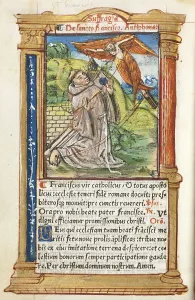 Suffragia
De sancto francisco. Antiphona.
Franciscus vir catholicus & totus aposto
licus ecclesie teneri fidem romane docuit: pres
biterosque monuit: pre cunctis revereri.
Ora pro nobis beate pater francisce. Ut
digni efficiamur promissionibus christi. Ora.
Deus qui ecclesiam tuam beati francisci me
ritis fetu nove prolis amplificas: tribue no
bis ex eius imitatione terrena despicere: et cele
stium donorum semper participatione gaude
re. Per christum dominum nostrum. Amen.